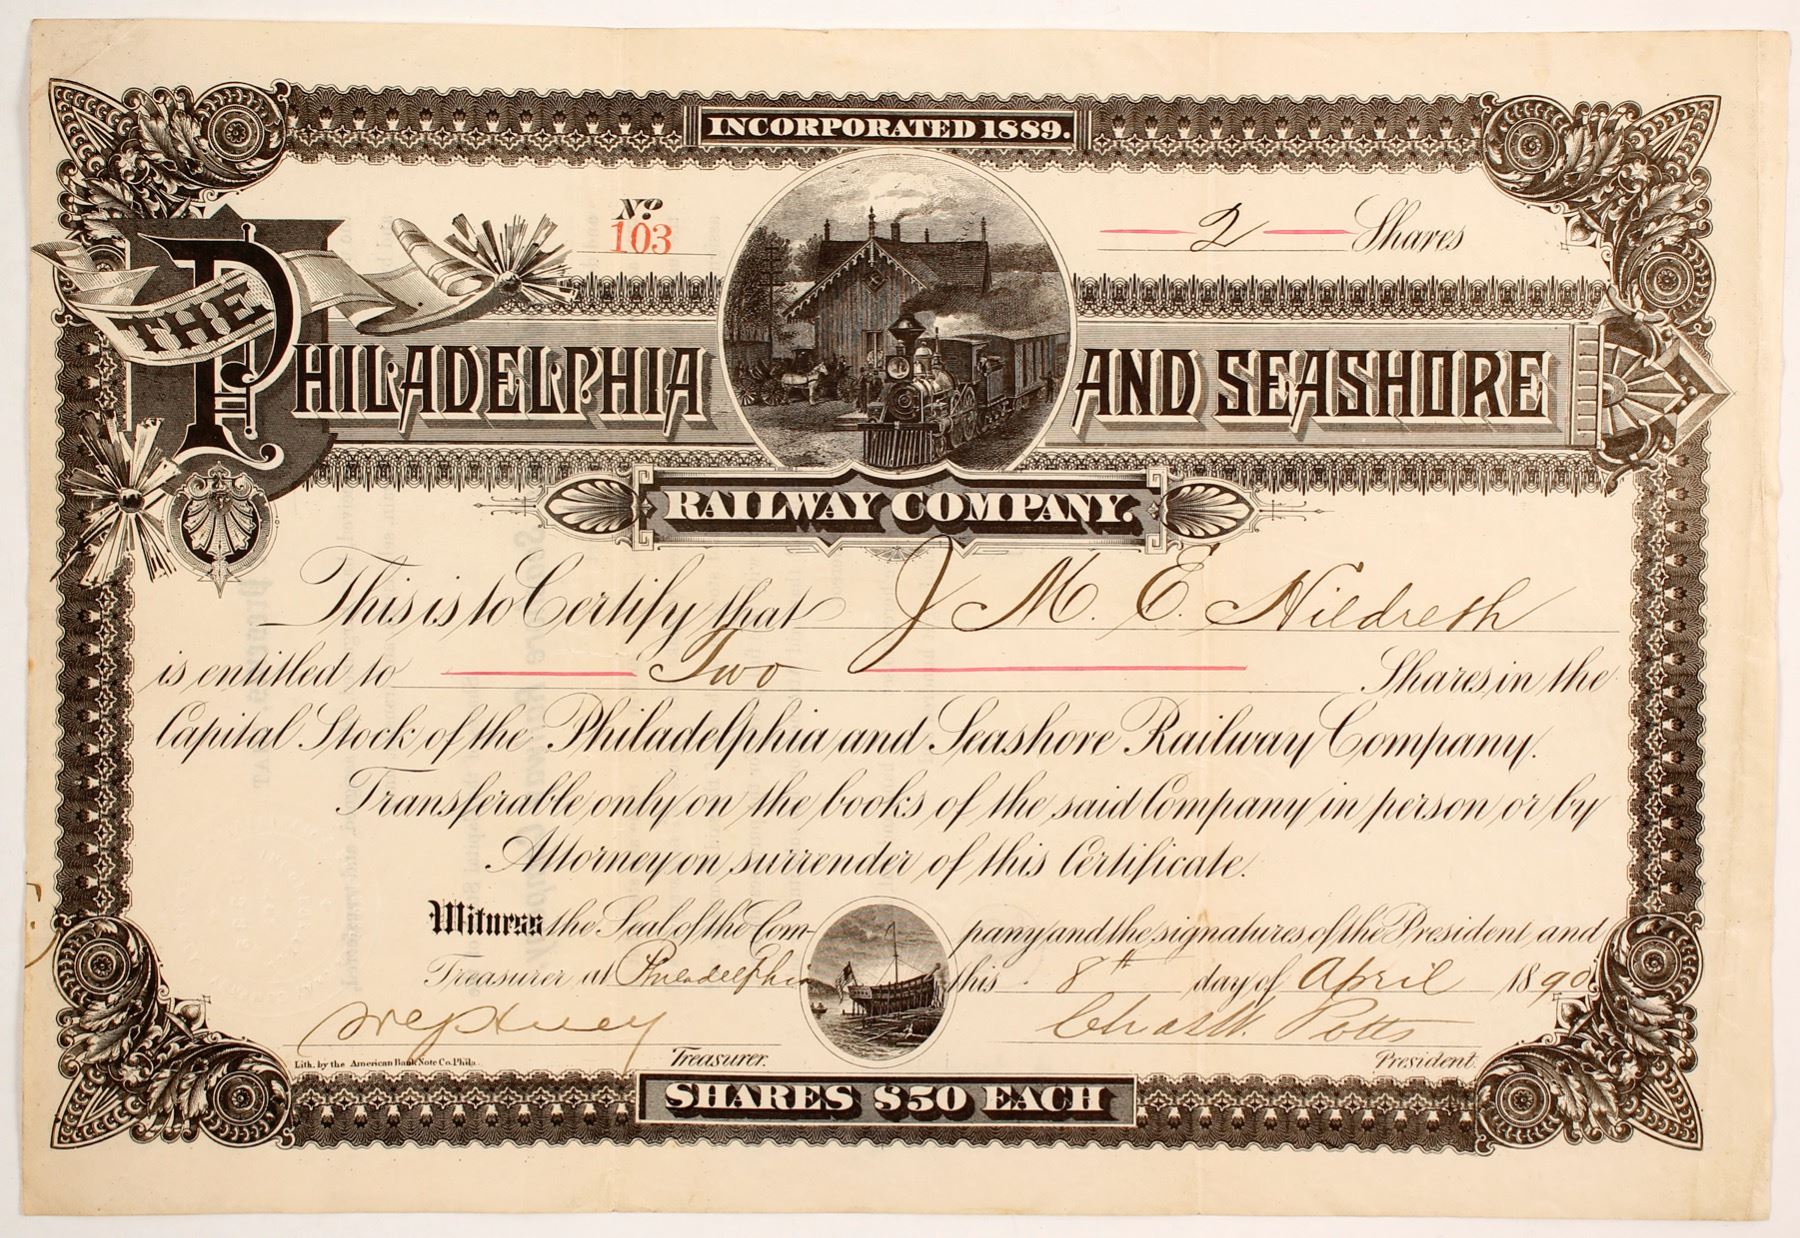 INCORPORATED 1889.
No.
103
2 Shares
THE
PHILADELPHIA AND SEASHORE
RAILWAY COMPANY.
This is to Certify that J M. E. Hildreth
is entitled to Two Shares in the
Capital Stock of the Philadelphia and Seashore Railway Company.
Transferable only on the books of the said Company in person or by
Attorney on surrender of this Certificate.
Witness the Seal of the Company and the signatures of the President and
Treasurer at Philadelphia this 8th day of April 1890
Chas W. Potts
Lith. by the American Bank Note Co. Phila.
Treasurer.
President.
SHARES $50 EACH